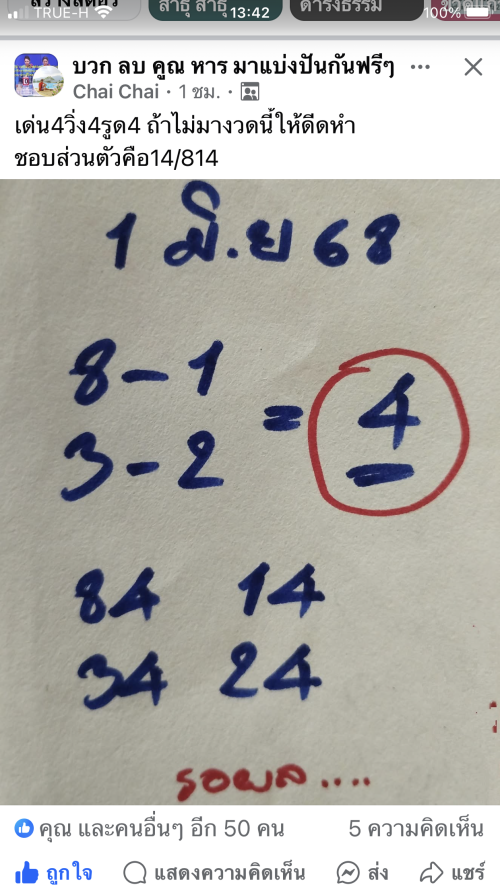 TRUE-H 13:42 100%
สาธุ สาธุ ดำรงธรรม
บวก ลบ คูณ หาร มาแบ่งปันกันฟรีๆ
Chai Chai · 1 ชม. ·
เด่น4วิ่ง4รูด4 ถ้าไม่มางวดนี้ให้ดีดหำ
ชอบส่วนตัวคือ14/814
1 มิ.ย 68
8-1
= 4
3-2
84 14
34 24
รอผล....
คุณ และคนอื่นๆ อีก 50 คน 5 ความคิดเห็น
ถูกใจ แสดงความคิดเห็น ส่ง แชร์